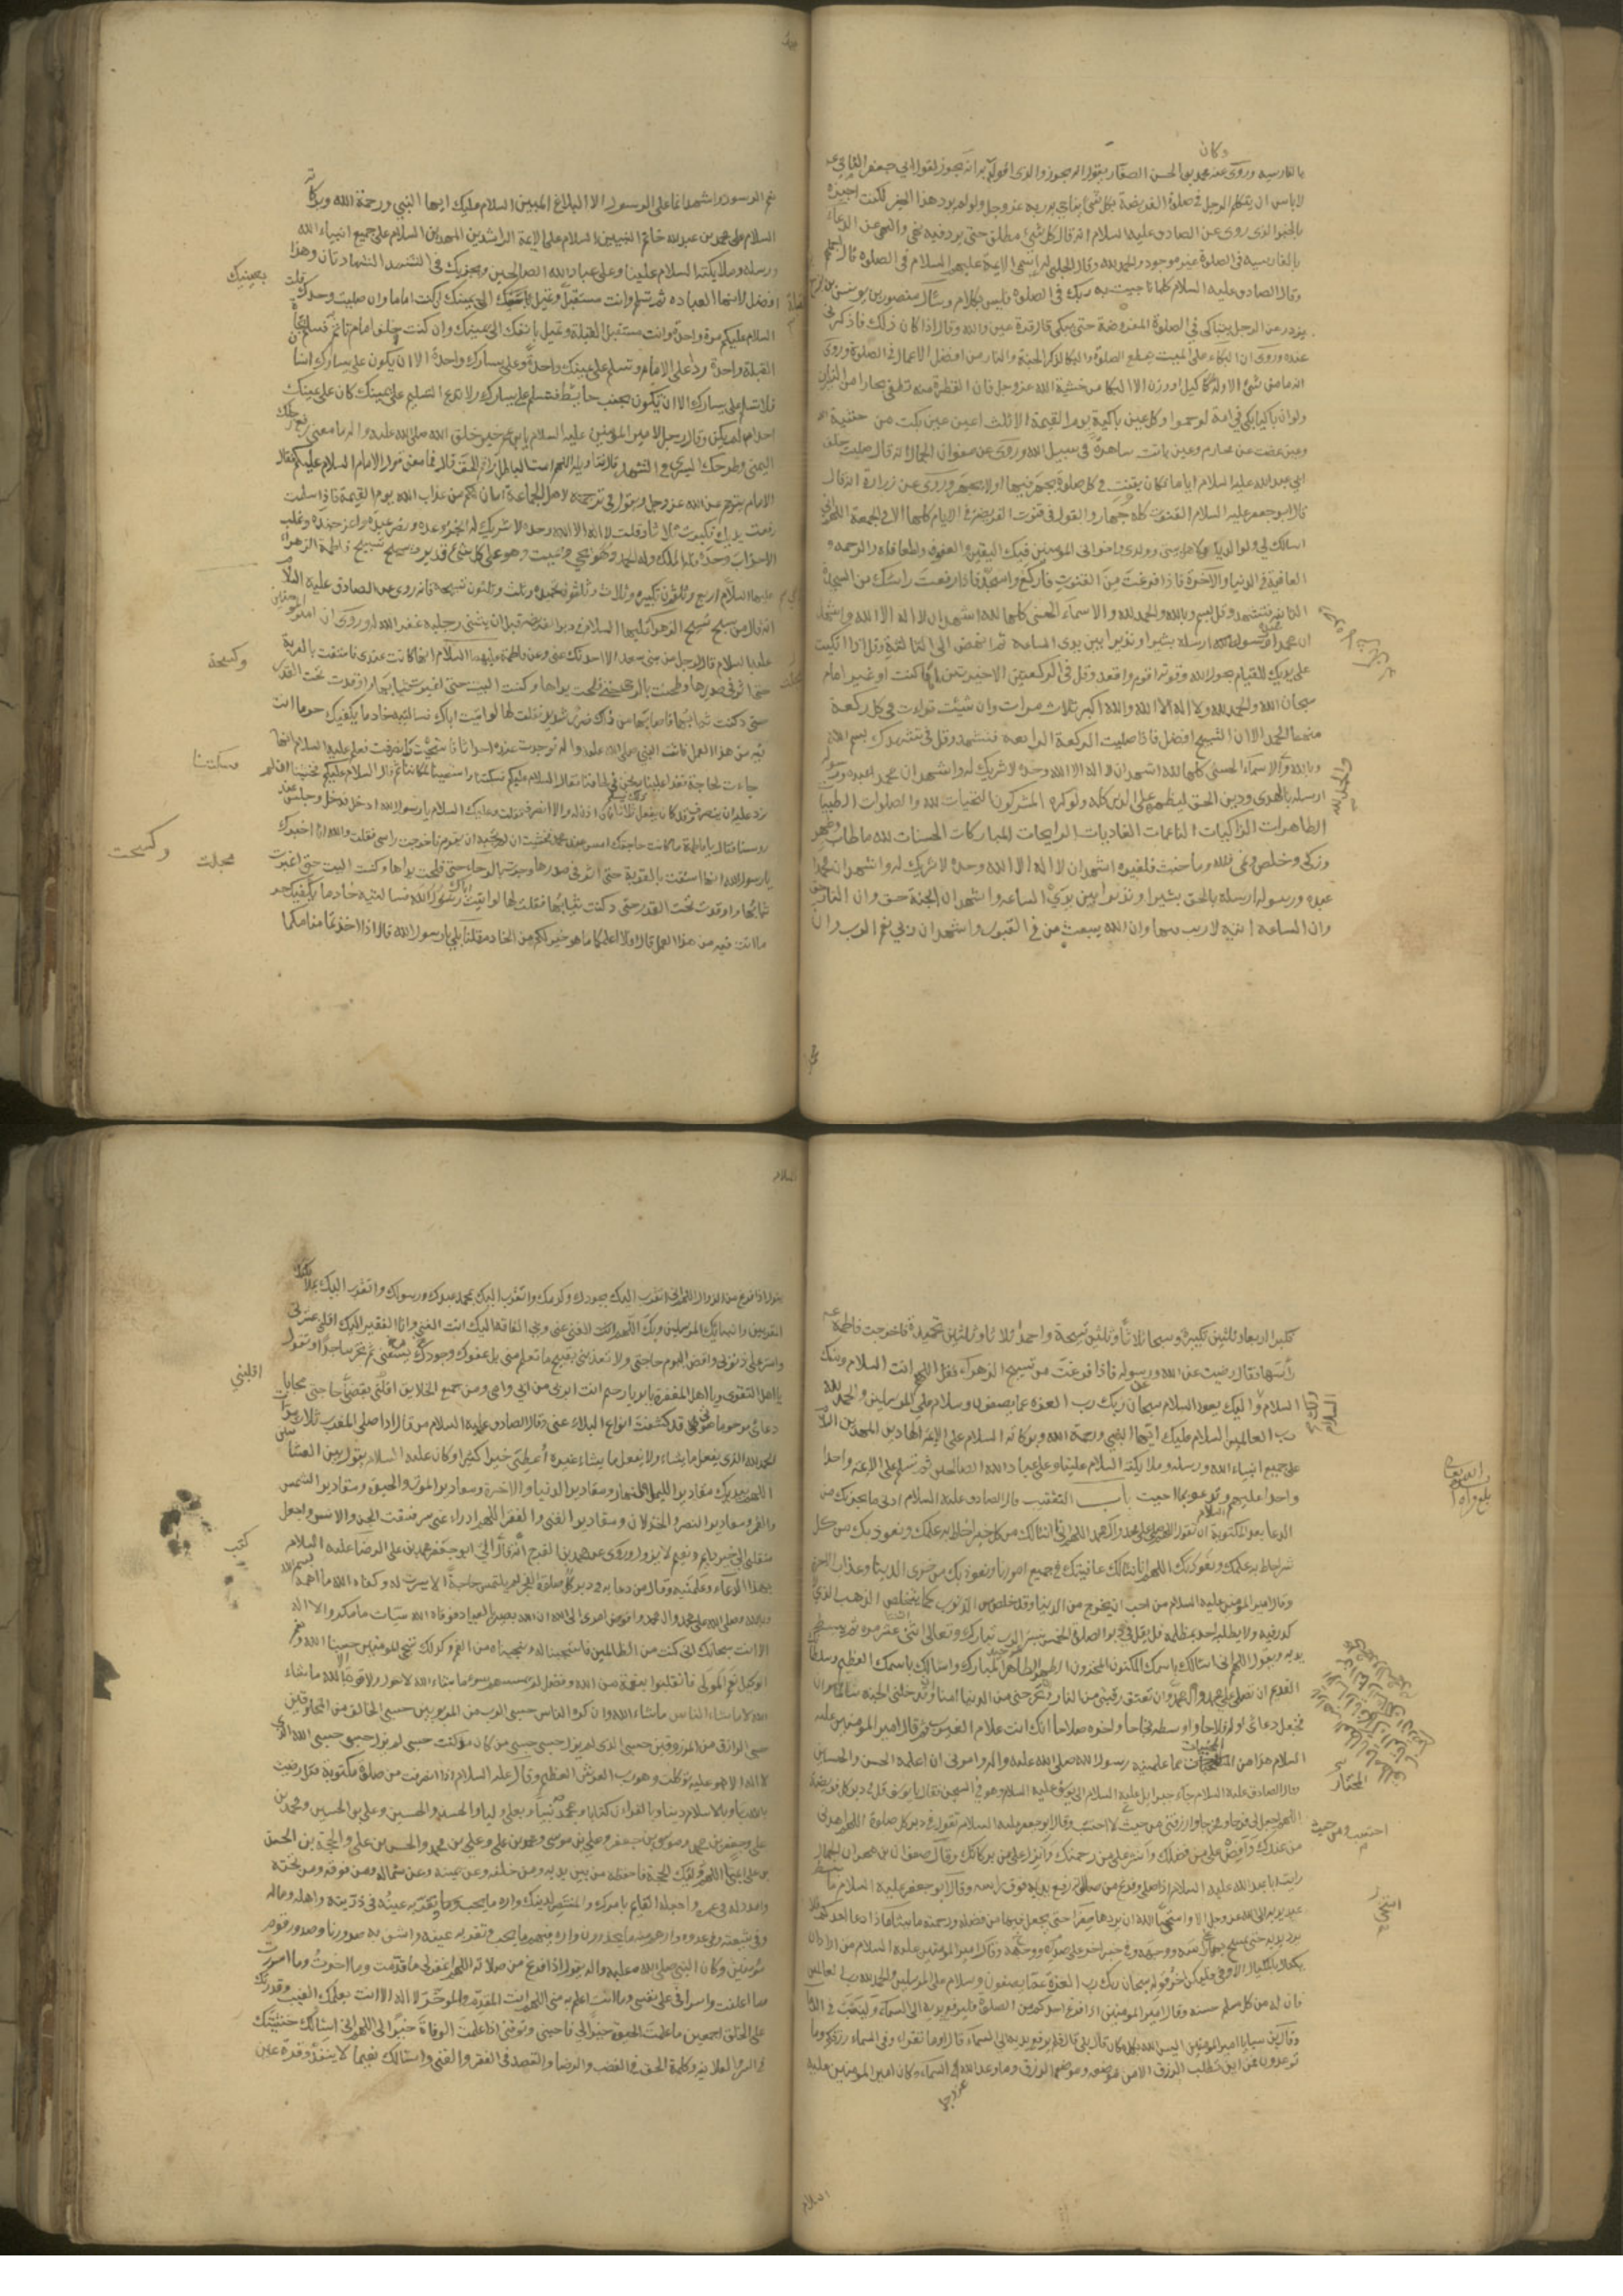 وكان
بالفارسية وروى عنه محمد بن الحسن الصفار يقول انه يجوز والذي اقول به انه يجوز لقول ابي جعفر الثاني عه
لا باس ان يتكلم الرجل في صلوة الفريضة بكل شئ يناجي به ربه عز وجل ولو لم يرد هذا الخبر لكنت اجيزه
بالخبر الذي روى عن الصادق عليه السلام انه قال كل شئ مطلق حتى يرد فيه نهي والنهي عن الدعاء
بالفارسية في الصلوة غير موجود والحمد لله وقال الحلبي له اسمي الايمة عليهم السلام في الصلوة قال
وقال الصادق عليه السلام كلما ناجيت به ربك في الصلوة فليس بكلام وسأل منصور بن يونس بزرج
عن الرجل يتباكى في الصلوة المفروضة حتى يبكي قال قرة عين والله وقال اذا كان ذلك فاذكرني
عنده وروى ان البكاء على الميت يقطع الصلوة والبكا لذكر الجنة والنار من افضل الاعمال في الصلوة وروى
انه ما من شئ الا وله كيل او وزن الا البكا من خشية الله عز وجل فان القطرة منه تطفي بحارا من النيران
ولو ان باكيا بكى في امة لرحموا وكل عين باكية يوم القيمة الا ثلث اعين عين بكت من خشية الله
وعين غضت عن محارم وعين باتت ساهرة في سبيل الله وروى عن صفوان الجمال انه قال صليت خلف
ابي عبد الله عليه السلام اياما فكان يقنت في كل صلوة يجهر فيها او لا يجهر وروى عن زرارة انه قال
قال ابو جعفر عليه السلام القنوت كله جهار والقول في قنوت الفريضة في الايام كلها الا في الجمعة اللهم اني
اسالك لي ولوالدي ولولدي واهل بيتي واخواني المؤمنين فيك اليقين والعفو والمعافاة والرحمة و
العافية في الدنيا والاخرة فاذا فرغت من القنوت فاركع واسجد فاذا رفعت راسك من السجدة
الثانية فتشهد وقل بسم الله وبالله والحمد لله والاسماء الحسنى كلها لله اشهد ان لا اله الا الله واشهد
ان محمدا عبده ورسوله ارسله بشيرا ونذيرا بين يدي الساعة ثم انهض الى الثالثة وقل اذا اتكيت
على يديك للقيام بحول الله وقوته اقوم واقعد وقل في الركعتين الاخيرتين اماما كنت او غير امام
سبحان الله والحمد لله ولا اله الا الله والله اكبر ثلاث مرات وان شيئت قراءت في كل ركعة
منهما الحمد الا ان التسبيح افضل فاذا صليت الركعة الرابعة فتشهد وقل في تشهدك بسم الله
وبالله والاسماء الحسنى كلها لله اشهد ان لا اله الا الله وحده لا شريك له واشهد ان محمدا عبده ورسوله
ارسله بالهدى ودين الحق ليظهره على الدين كله ولو كره المشركون التحيات لله والصلوات الطيبات
الطاهرات الزاكيات الناعمات الغاديات الرايحات المباركات الحسنات لله ما طاب وطهر
وزكى وخلص ونمى فلله وما خبث فلغيره اشهد ان لا اله الا الله وحده لا شريك له واشهد ان محمدا
عبده ورسوله ارسله بالحق بشيرا ونذيرا بين يدي الساعة واشهد ان الجنة حق وان النار حق
وان الساعة اتية لا ريب فيها وان الله يبعث من في القبور واشهد ان ربي نعم الرب وان
نعم الرسول اشهد ان ما على الرسول الا البلاغ المبين السلام عليك ايها النبي ورحمة الله وبركاته
السلام على محمد بن عبد الله خاتم النبيين السلام على الايمة الراشدين المهديين السلام على جميع انبياء الله
ورسله وملايكته السلام علينا وعلى عباد الله الصالحين ويجزيك في التشهد الشهادتان وهذا
افضل لانها العبادة ثم تسلم وانت مستقبل وتميل الى يمينك ان كنت اماما وان صليت وحدك قلت
السلام عليكم مرة واحدة وانت مستقبل القبلة وتميل بانفك الى يمينك وان كنت خلف امام تاتم به فسلم
القبلة واحدة رد على الامام وتسلم على يمينك واحدة وعلى يسارك واحدة الا ان يكون على يسارك انسان
فلا تسلم على يسارك الا ان تكون بجنب حائط فتسلم على يسارك ولا تدع التسليم على يمينك كان على يمينك
احد او لم يكن وقال رجل لامير المؤمنين عليه السلام يا بن عم خير خلق الله صلى الله عليه واله ما معنى رفع رجلك
اليمنى وطرحك اليسرى في التشهد قال تاويله اللهم امت الباطل واقم الحق قال فما معنى قول الامام السلام عليكم فقال
الامام يترجم عن الله عز وجل ويقول في ترجمته لاهل الجماعة امان لكم من عذاب الله يوم القيمة فاذا سلمت
رفعت يديك فكبرت ثلاثا وقلت لا اله الا الله وحده لا شريك له انجز وعده ونصر عبده واعز جنده وغلب
الاحزاب وحده فله الملك وله الحمد وهو يحيي ويميت وهو على كل شئ قدير وتسبح تسبيح فاطمة الزهراء
عليها السلام اربع وثلثون تكبيرة وثلاث وثلثون تحميدة وثلث وثلثون تسبيحة فانه روى عن الصادق عليه السلام
انه قال من سبح تسبيح الزهراء عليها السلام في دبر الفريضة قبل ان يثنى رجليه غفر الله له وروى ان امير المؤمنين
عليه السلام قال لرجل من بني سعد الا احدثك عني وعن فاطمة عليهما السلام انها كانت عندي فاستقت بالقربة
حتى اثر في صدرها وطحنت بالرحى حتى مجلت يداها وكنت البيت حتى اغبرت ثيابها واوقدت تحت القدر
حتى دكنت ثيابها فاصابها من ذلك ضر شديد فقلت لها لو اتيت اباك فسالتيه خادما يكفيك حر ما انت
فيه من هذا العمل فاتت النبي صلى الله عليه واله فوجدت عنده احداثا فاستحيت فانصرفت فعلم عليه السلام انها
جاءت لحاجة فغدا علينا ونحن في لحافنا فقال السلام عليكم فسكتنا واستحيينا لمكاننا ثم قال السلام عليكم فخشينا ان لم
نرد عليه ان ينصرف وقد كان يفعل ذلك يسلم ثلاثا فان اذن له والا انصرف فقلت وعليك السلام يا رسول الله ادخل فدخل وجلس عند
روسنا فقال يا فاطمة ما كانت حاجتك امس عند محمد فخشيت ان لم نجبه ان يقوم فاخرجت راسي فقلت والله انا اخبرك
يا رسول الله انها استقت بالقربة حتى اثر في صدرها وجرت بالرحا حتى مجلت يداها وكنت البيت حتى اغبرت
ثيابها واوقدت تحت القدر حتى دكنت ثيابها فقلت لها لو اتيت اباك فسالتيه خادما يكفيك حر
ما انت فيه من هذا العمل قال افلا اعلمكما ما هو خير لكم من الخادم فقلنا بلى يا رسول الله قال اذا اخذتما منامكما
بيمينك
وكسحة
فسكتنا
مجلت
وكسحت
فكبرا اربعا وثلثين تكبيرة وسبحا ثلاثا وثلثين تسبيحة واحمدا ثلاثا وثلثين تحميدة فاخرجت فاطمة عه
رأسها فقال رضيت عن الله ورسوله فاذا فرغت من تسبيح الزهراء فقل اللهم انت السلام ومنك
السلام واليك يعود السلام سبحان ربك رب العزة عما يصفون وسلام على المرسلين والحمد لله
رب العالمين السلام عليك ايها النبي ورحمة الله وبركاته السلام على الايمة الهادين المهديين السلام
على جميع انبياء الله ورسله وملايكته السلام علينا وعلى عباد الله الصالحين ثم تسلم على الايمة واحدا
واحدا عليهم السلام وتدعو بما احببت باب التعقيب قال الصادق عليه السلام ادنى ما يجزيك من
الدعا بعد المكتوبة ان تقول اللهم صل على محمد وال محمد اللهم انا نسالك من كل خير احاط به علمك ونعوذ بك من كل
شر احاط به علمك اللهم انا نسالك عافيتك في جميع امورنا ونعوذ بك من خزي الدنيا وعذاب الاخرة
وقال امير المؤمنين عليه السلام من احب ان يخرج من الدنيا وقد خلص من الذنوب كما يتخلص الذهب الذي
لا كدر فيه ولا يطلبه احد بمظلمة فليقل في دبر الصلوة الخمس نسبة الرب تبارك وتعالى اثنتي عشر مرة ثم يبسط
يديه ويقول اللهم اني اسالك باسمك المكنون المخزون الطهر الطاهر المبارك واسالك باسمك العظيم وسلطانك
القديم ان تصلي على محمد وال محمد وان تعتق رقبتي من النار وتخرجني من الدنيا امنا وتدخلني الجنة سالما وان
تجعل دعائي اوله فلاحا واوسطه نجاحا واخره صلاحا انك انت علام الغيوب ثم قال امير المؤمنين عليه
السلام هذا من المخبيات مما علمنيه رسول الله صلى الله عليه واله وامرني ان اعلمه الحسن والحسين
وقال الصادق عليه السلام جاء جبرائيل عليه السلام الى يوسف عليه السلام وهو في السجن فقال يا يوسف قل في دبر كل فريضة
اللهم اجعل لي فرجا ومخرجا وارزقني من حيث لا احتسب وقال ابو جعفر عليه السلام تقول في دبر كل صلوة اللهم اهدني
من عندك وافض علي من فضلك وانشر علي من رحمتك وانزل علي من بركاتك وقال صفوان بن مهران الجمال
رايت ابا عبد الله عليه السلام اذا صلى وفرغ من صلاته رفع يديه فوق راسه وقال ابو جعفر عليه السلام ما بسط
عبد يديه الى الله عز وجل الا واستحيا الله ان يردها صفرا حتى يجعل فيها من فضله ورحمته ما يشا فاذا دعا احدكم فلا
يرد يديه حتى يمسح بهما على راسه ووجهه وفي خبر اخر على صدره ووجهه وقال امير المؤمنين عليه السلام من اراد ان
يكتال بالمكيال الاوفى فليكن اخر قوله سبحان ربك رب العزة عما يصفون وسلام على المرسلين والحمد لله رب العالمين
فان له من كل مسلم حسنة وقال امير المؤمنين اذا فرغ احدكم من الصلوة فليرفع يديه الى السماء ولينصب في الدعا
وقال بن سبا يا امير المؤمنين اليس الله بكل مكان قال بلى قال فلم يرفع يديه الى السماء قال اوما تقراء وفي السماء رزقكم وما
توعدون فمن اين نطلب الرزق الا من موضعه وموضع الرزق وما وعد الله عز وجل السماء وكان امير المؤمنين عليه
السلام
المختار
احتسب ومن حيث
استحيى
يقول اذا فرغ من الزوال اللهم اني اتقرب اليك بجودك وكرمك واتقرب اليك بمحمد عبدك ورسولك واتقرب اليك بملائكتك
المقربين وانبيائك المرسلين وبك اللهم انت الغني عني وبي الفاقة اليك انت الغني وانا الفقير اليك اقلني عثرتي
واستر علي ذنوبي واقض اليوم حاجتي ولا تعذبني بقبيح ما تعلم مني بل عفوك وجودك يسعني ثم تخر ساجدا وتقول
يا اهل التقوى ويا اهل المغفرة يا بر يا رحيم انت ابر بي من ابي وامي ومن جميع الخلايق اقلبني بقضاء حاجتي مجابا
دعائي مرحوما صوتي قد كشفت انواع البلاء عني وقال الصادق عليه السلام من قال اذا صلى المغرب ثلاث مرات
الحمد لله الذي يفعل ما يشاء ولا يفعل ما يشاء غيره اعطي خيرا كثيرا وكان عليه السلام يقول بين العشائين
اللهم بيدك مقادير الليل والنهار ومقادير الدنيا والاخرة ومقادير الموت والحيوة ومقادير الشمس
والقمر ومقادير النصر والخذلان ومقادير الغنى والفقر اللهم ادراء عني شر فسقة الجن والانس واجعل
منقلبي الى خير دايم ونعيم لا يزول وروى عن محمد بن الفرج انه قال كتب الي ابو جعفر محمد بن علي الرضا عليه السلام
بهذا الدعاء وعلمنيه وقال من دعا به في دبر كل صلوة الفجر لم يلتمس حاجة الا يسرت له وكفاه الله ما اهمه بسم الله
وبالله وصلى الله على محمد وال محمد وافوض امري الى الله ان الله بصير بالعباد فوقاه الله سيئات ما مكروا لا اله
الا انت سبحانك اني كنت من الظالمين فاستجبنا له ونجيناه من الغم وكذلك ننجي المؤمنين حسبنا الله ونعم
الوكيل فانقلبوا بنعمة من الله وفضل لم يمسسهم سوء ما شاء الله لا حول ولا قوة الا بالله ما شاء
الله لا ما شاء الناس ما شاء الله وان كره الناس حسبي الرب من المربوبين حسبي الخالق من المخلوقين
حسبي الرازق من المرزوقين حسبي الذي لم يزل حسبي حسبي من كان مذ كنت حسبي لم يزل حسبي حسبي الله الذي
لا اله الا هو عليه توكلت وهو رب العرش العظيم وقال عليه السلام اذا انصرفت من صلوة مكتوبة فقل رضيت
بالله ربا وبالاسلام دينا وبالقران كتابا وبمحمد نبيا وبعلي وليا والحسن والحسين وعلي بن الحسين ومحمد بن
علي وجعفر بن محمد وموسى بن جعفر وعلي بن موسى ومحمد بن علي وعلي بن محمد والحسن بن علي والحجة بن الحسن
بن علي ائمة اللهم وليك الحجة فاحفظه من بين يديه ومن خلفه وعن يمينه وعن شماله ومن فوقه ومن تحته
وامدد له في عمره واجعله القايم بامرك والمنتصر لدينك واره ما يحب وما تقر به عينه في ذريته واهله وماله
وفي شيعته وفي عدوه وارهم منه ما يحذرون واره فيهم ما يحب وتقر به عينه واشف به صدورنا وصدور قوم
مؤمنين وكان النبي صلى الله عليه واله يقول اذا فرغ من صلاته اللهم اغفر لي ما قدمت وما اخرت وما اسررت
وما اعلنت واسرافي على نفسي وما انت اعلم به مني اللهم انت المقدم والموخر لا اله الا انت بعلمك الغيب وقدرتك
على الخلق اجمعين ما علمت الحيوة خيرا لي فاحيني وتوفني اذا علمت الوفاة خيرا لي اللهم اني اسالك خشيتك
في السر والعلانية وكلمة الحق في الغضب والرضا والقصد في الفقر والغنى واسالك نعيما لا ينفد وقرة عين
اقلبني
كتب